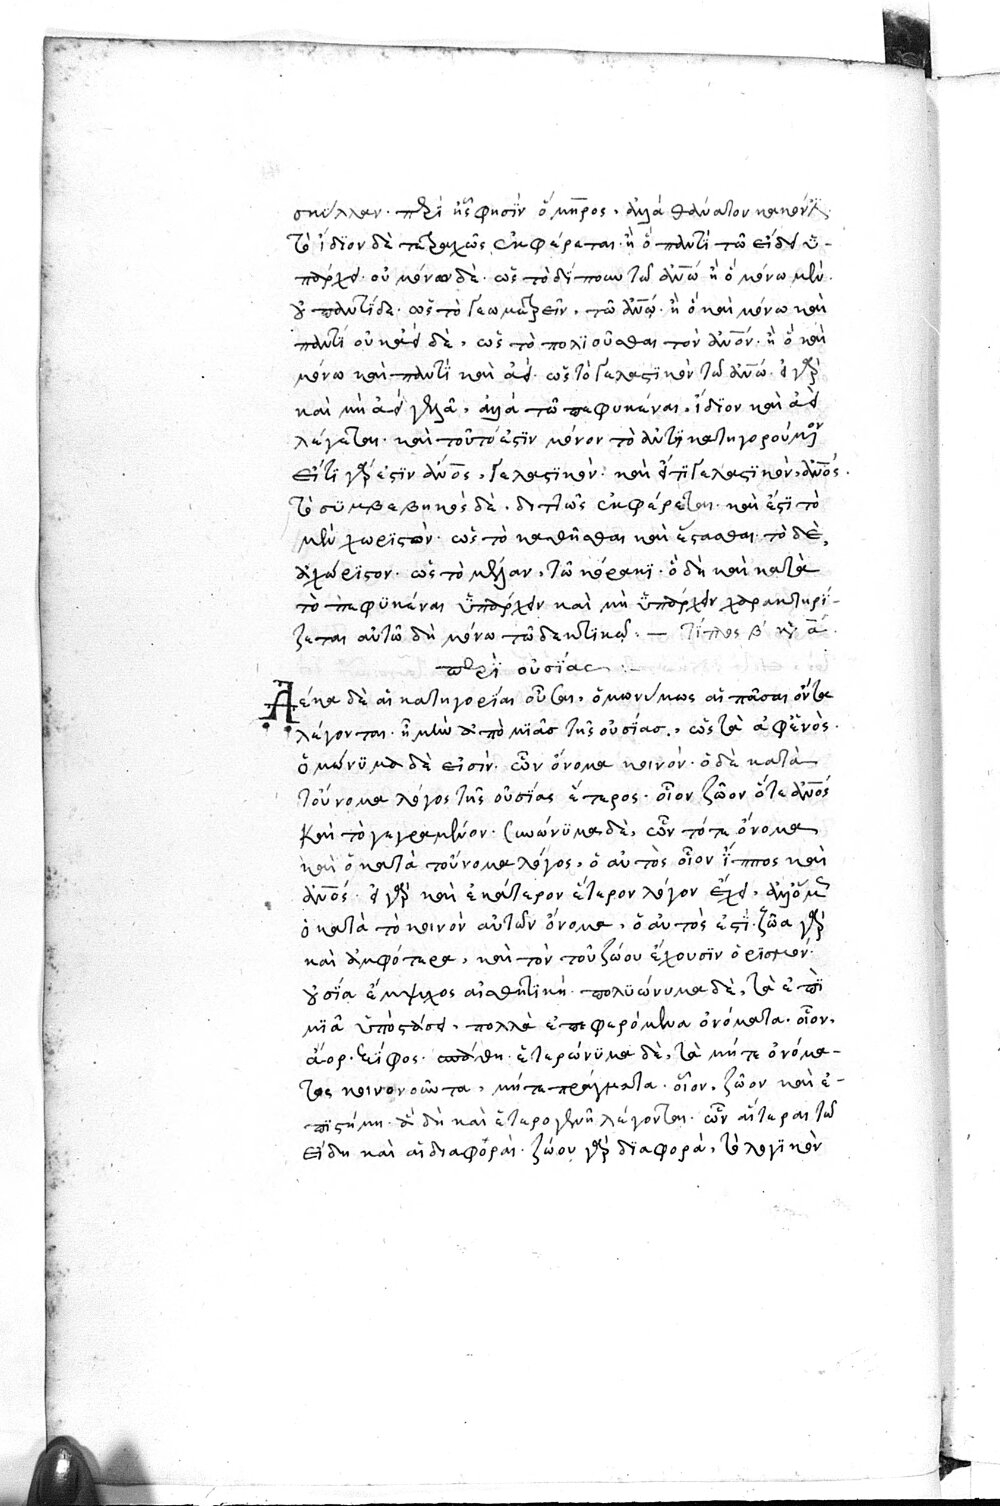 σκύλλαν· περὶ ἧς φησὶν ὅμηρος, ἀλλὰ ἀθάνατον κακόν ἐϊ
τὸ ἴδϊον δὲ τετραχῶς ἐκφέρεται· ἢ ὃ παντὶ τῶ εἴδει ὑ-
πάρχει· οὐ μόνον δὲ· ὡς τὸ δίπουν τῶ ἀνω· ἢ ὃ μόνω μὲν·
οὐ παντὶ δε· ὡς τὸ γεωμετρεῖν, τῶ ἀνω· ἢ ὃ καὶ μόνω καὶ
παντὶ οὐκ ἀεὶ δὲ, ὡς τὸ πολιοῦσθαι τὸν ἀνον· ἢ ὃ καὶ
μόνω καὶ παντὶ καὶ ἀεί· ὡς τὸ γελαστϊκὸν τῶ ἀνω· εἰ γὰρ
καὶ μὴ ἀεὶ γελᾶ, ἀλλὰ τῶ πεφυκέναι, ἴδϊον καὶ ἀεὶ
λέγεται· καὶ τοῦτό ἐστϊν μόνον τὸ ἀντϊκατηγορούμενον
εἴ τι γάρ ἐστϊν ἀνος, γελαστϊκόν· καὶ εἴ τϊ γελαστϊκὸν, ἀνος·
τὸ συμβεβηκὸς δὲ, διττῶς ἐκφέρεται· καὶ ἔστϊ τὸ
μὲν χωριστὸν· ὡς τὸ καθῆσθαι καὶ ἕστασθαι· τὸ δὲ,
ἀχώριστον· ὡς τὸ μέλαν, τῶ κόρακϊ· ὃ δὴ καὶ κατὰ
τὸ πεφυκέναι ὑπάρχειν καὶ μὴ ὑπάρχειν χαρακτηρί-
ζεται αὐτῶ δὴ μόνω τῶ δεκτικῶ·
περὶ οὐσίας
Δέκα δὲ αἱ κατηγορίαι οὖσαι, ὁμωνύμως αἱ πᾶσαι ὄντα
λέγονται· ἢ μὲν ἀπὸ μϊᾶς τῆς οὐσίας, ὡς τὰ ἀφ' ἑνὸς·
ὁμώνϋμα δὲ εἰσὶν· ὧν ὄνομα κοινόν· ὁ δὲ κατὰ
τοὔνομα λόγος τῆς οὐσίας ἕτερος· οἷον ζῶον ὅ τε ἀνος
καὶ τὸ γεγραμμένον· συνώνϋμα δὲ, ὧν τό τε ὄνομα
καὶ ὁ κατὰ τοὔνομα λόγος, ὁ αὐτὸς οἷον ἵππος καὶ
ἀνος· εἰ γὰρ καὶ ἑκάτερον ἕτερον λόγον ἔχει, ἀλλ' ὅμως
ὁ κατὰ τὸ κοινὸν αὐτῶν ὄνομα, ὁ αὐτὸς ἐστϊ· ζῶα γὰρ
καὶ ἀμφότερα, καὶ τὸν τοῦ ζώου ἔχουσϊν ὁρισμόν·
οὐσϊα ἔμψυχος αἰσθητϊκή· πολϋώνυμα δὲ, τὰ ἐπὶ
μϊᾶ ὑποστάσει, πολλὰ ἐπιφερόμενα ὀνόματα· οἷον,
ἄορ· ξίφος· σπάθη· ἑτερώνϋμα δὲ, τὰ μήτε ὀνόμα-
τος κοινονοῦντα, μήτε πράγματα· οἷον, ζῶον καὶ ἐ-
πϊστήμη· ἃ δὴ καὶ ἑτερογενῆ λέγονται· ὧν αἵτεραι τῶ
εἴδη καὶ αἱ διαφοραὶ· ζώου γὰρ δϊαφορὰ, τὸ λογϊκὸν